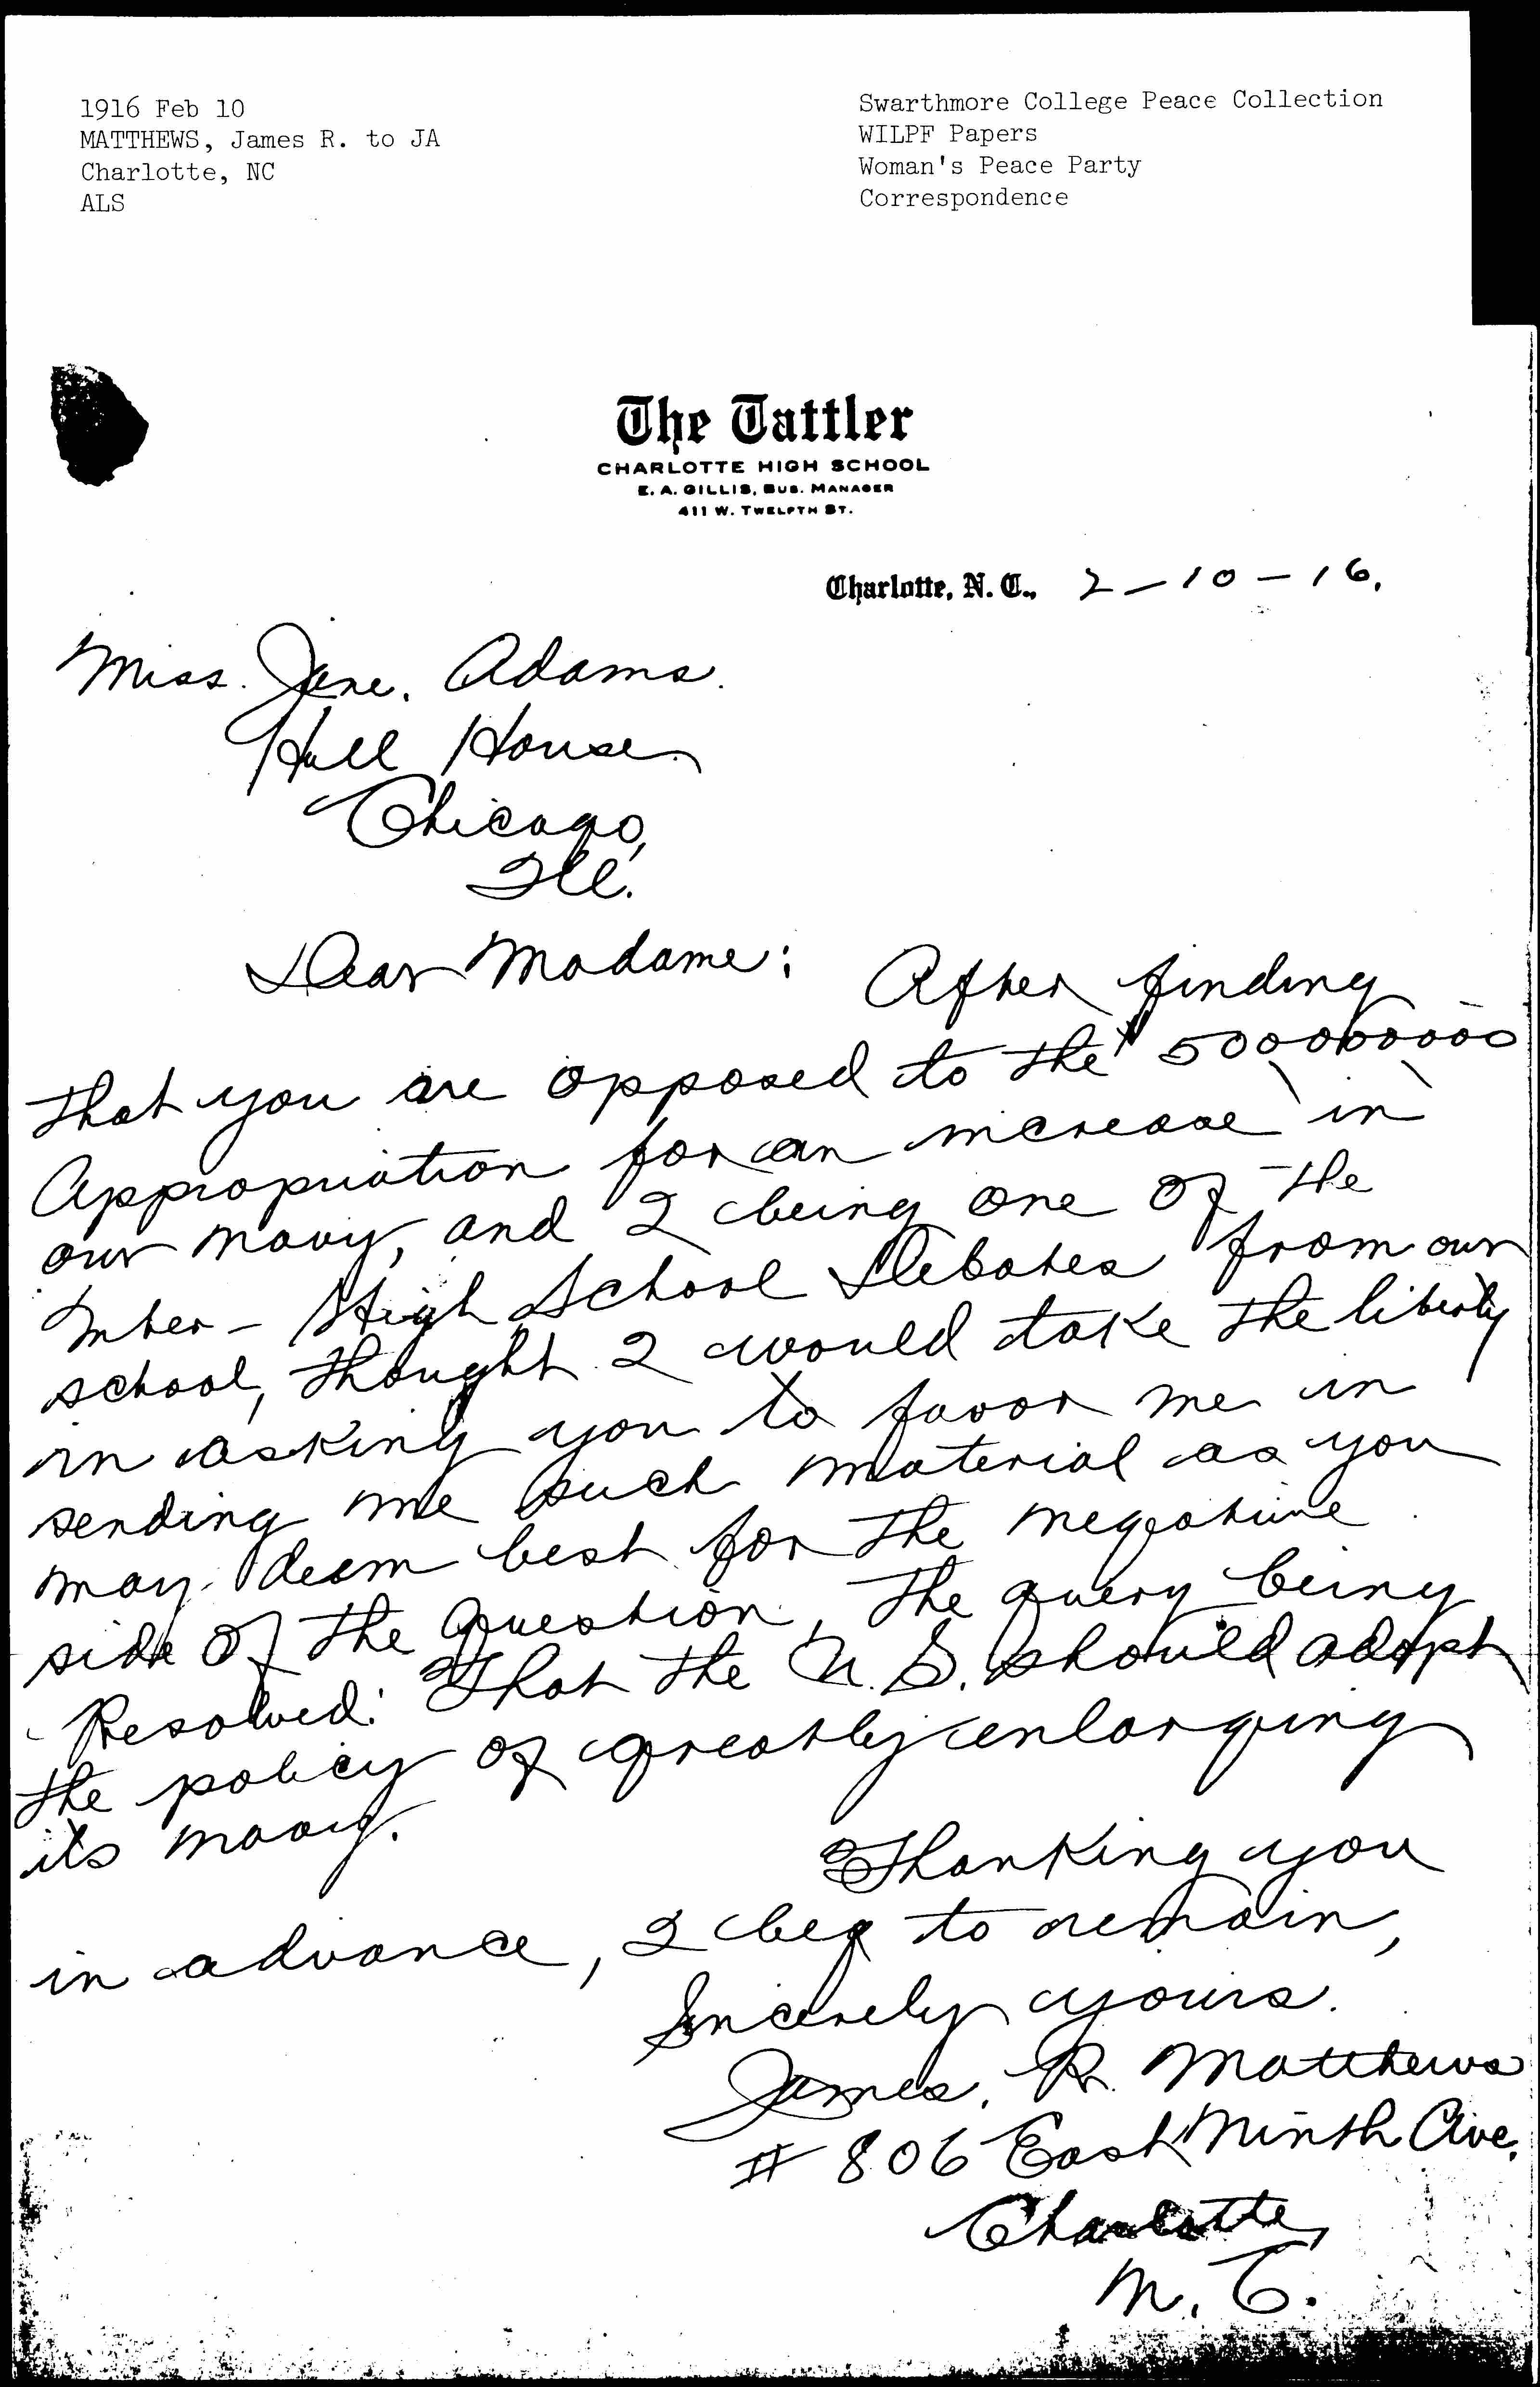 1916 Feb 10
MATTHEWS, James R. to JA
Charlotte, NC
ALS
Swarthmore College Peace Collection
WILPF Papers
Woman's Peace Party
Correspondence
The Tattler
CHARLOTTE HIGH SCHOOL
E. A. GILLIS, BUS. MANAGER
411 W. TWELFTH ST.
Charlotte, N. C., 2-10-16.
Miss. Jane. Adams.
Hull House.
Chicago,
Ill.
Dear Madame: After finding
that you are opposed to the $500,000,000
Appropriation for an increase in
our navy, and I being one of the
Inter-High School Debates from our
school, thought I would take the liberty
in asking you to favor me in
sending me such material as you
may deem best for the negative
side of the question, the query being
Resolved: That the U.S. should adopt
the policy of greatly enlarging
its navy.
Thanking you
in advance, I beg to remain,
Sincerely yours.
James. R. Matthews
# 806 East Ninth Ave.
Charlotte,
N. C.